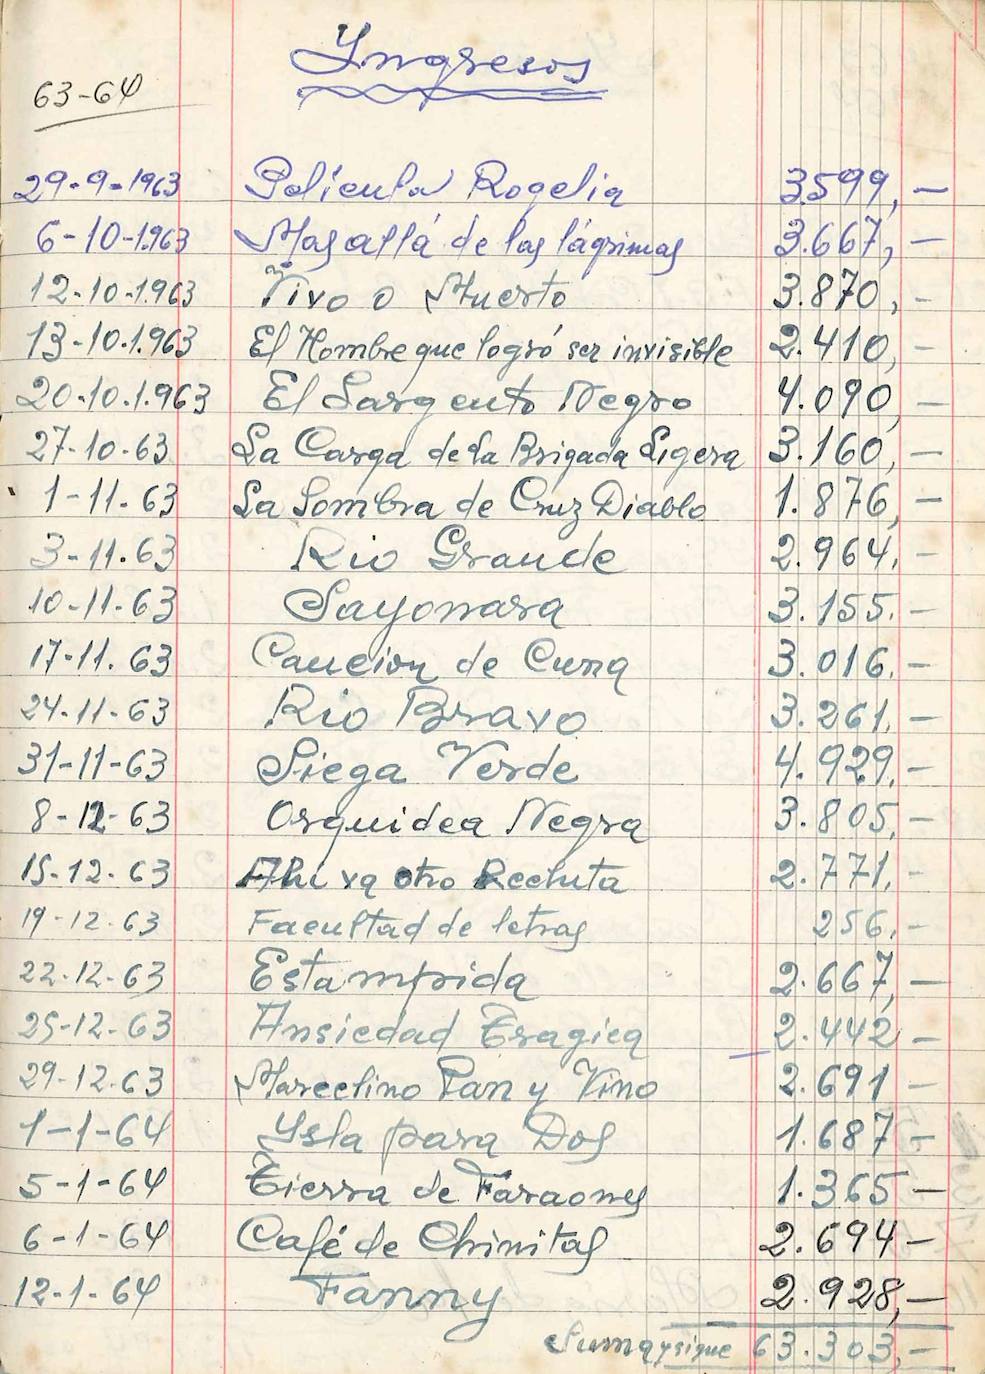 Yngresos
63-64
29-9-1963 Película Rogelia 3.599,-
6-10-1.963 Mas allá de las lágrimas 3.667,-
12-10-1.963 Vivo o Muerto 3.870,-
13-10.1.963 El Hombre que logró ser invisible 2.410,-
20-10.1.963 El Sargento Negro 4.090,-
27-10-63 La Carga de la Brigada Ligera 3.160,-
1-11-63 La Sombra de Cruz Diablo 1.876,-
3-11.63 Rio Grande 2.964,-
10-11-63 Sayonara 3.155.-
17-11.63 Cancion de Cuna 3.016.-
24-11-63 Rio Bravo 3.261.-
31-11-63 Siega Verde 4.929.-
8-12-63 Orquidea Negra 3.805,-
15-12-63 Ahi va otro Recluta 2.771.-
19-12-63 Facultad de letras 256.-
22-12-63 Estampida 2.667,-
25-12-63 Ansiedad Tragica 2.442-
29-12-63 Marcelino Pan y Vino 2.691-
1-1-64 Ysla para Dos 1.687-
5-1-64 Tierra de Faraones 1.365-
6-1-64 Café de Chinitas 2.694-
12-1-64 Fanny 2.928,-
Suma y sigue 63.303,-